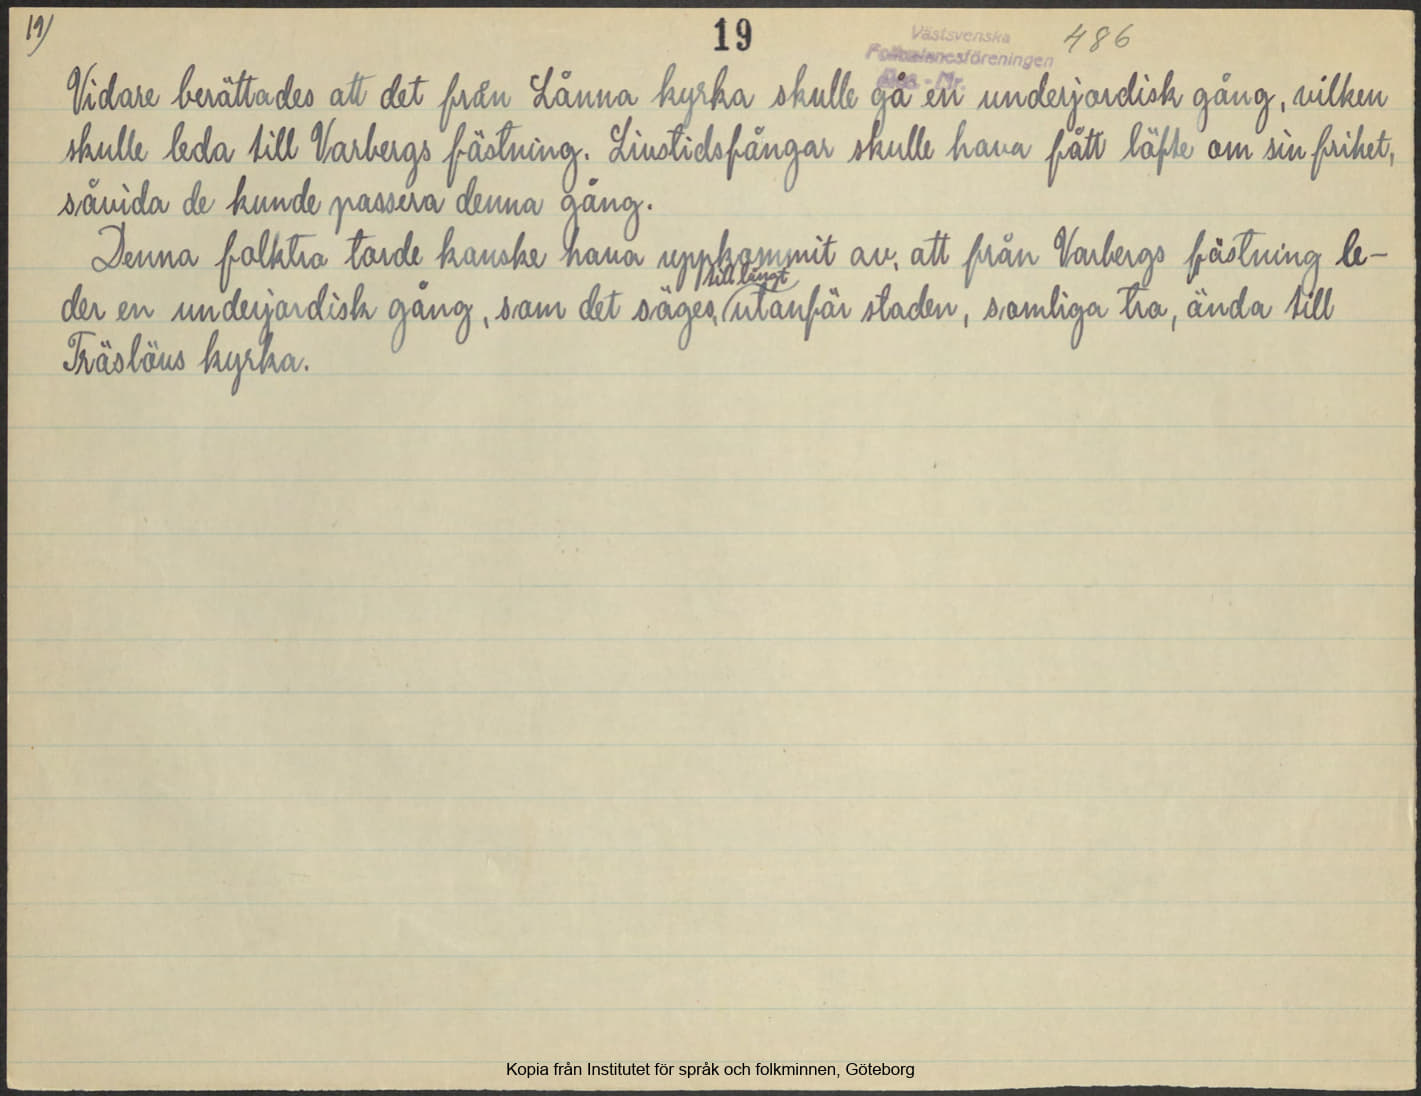 19)
19
Västsvenska
Folkminnesföreningen
486
Vidare berättades att det från Lånna kyrka skulle gå en underjordisk gång, vilken
skulle leda till Varbergs fästning. Livstidsfångar skulle hava fått löfte om sin frihet,
såvida de kunde passera denna gång.
Denna folktro torde kanske hava uppkommit av, att från Varbergs fästning le-
till långt
der en underjordisk gång, som det säges, utanför staden, somliga tro, ända till
Träslövs kyrka.
Kopia från Institutet för språk och folkminnen, Göteborg